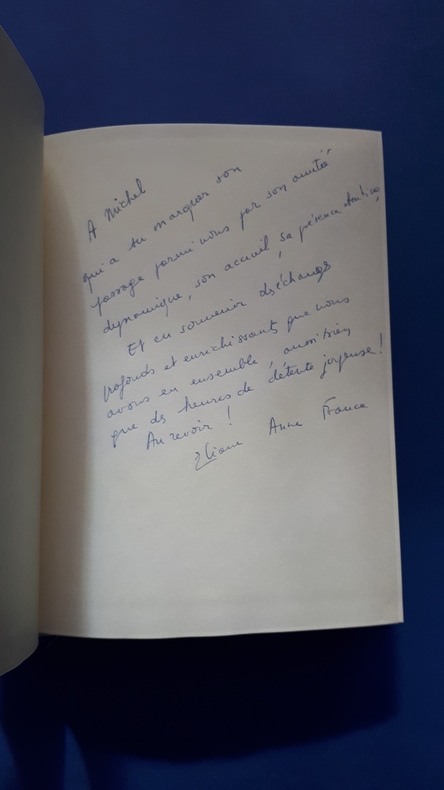 A Michel
qui a su marquer son
passage parmi nous par son amitié
dynamique, son accueil, sa présence attentive,
Et en souvenir des échanges
profonds et enrichissants que nous
avons eu ensemble, aussi bien
que des heures de détente joyeuse !
Au revoir !
Eliane Anne France